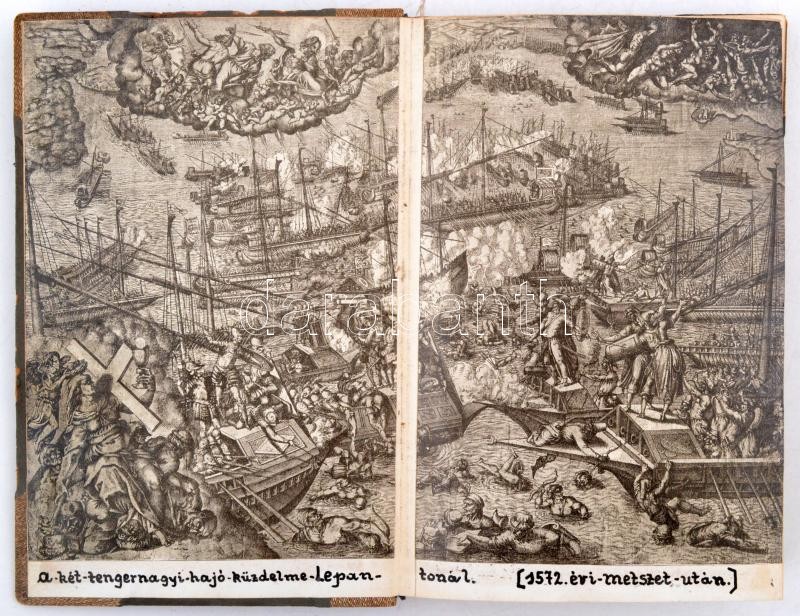 darabanth
a-két-tengernagyi-hajó-küzdelme-Lepan-
tonál. [1572.évi-metszet-után.]